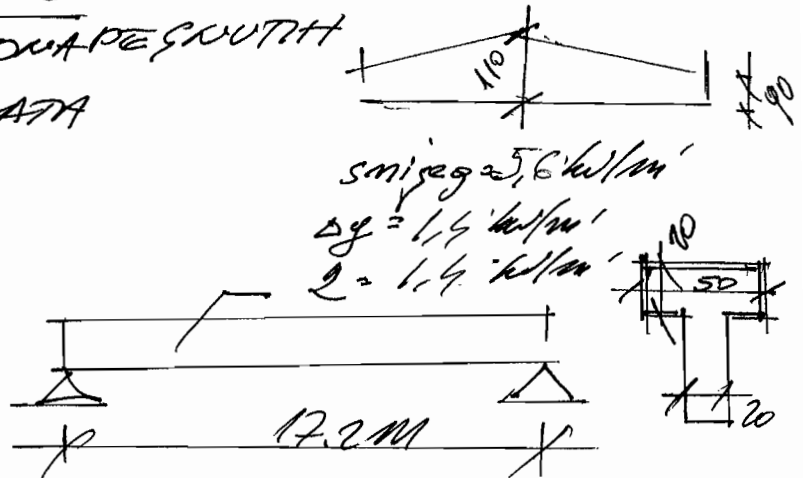 110
90
snijeg = 5,6 kN/m'
Δg = 1,4 kN/m'
2 = 1,4 kN/m'
50
20
17.2 M